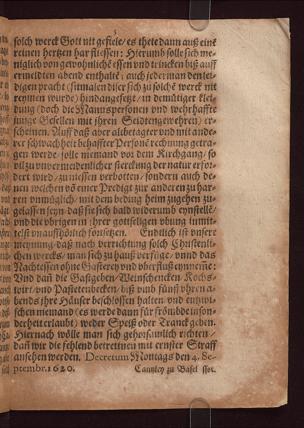 solch werck Gott nit gefiele / es thete dann auß eine
reinen hertzen har fliessen: Hierumb solle sich me-
niglich von gewohnliche essen und trincken biß auff
ermeldten abend enthalte: auch jederman den lei-
digen pracht (sitmalen dieser sich zu solche werck nit
reymen wurde) hindangesetzt / in demütiger klei-
dung (doch die Mannspersonen und wehrhaffte
junge Gesellen mit jhren Seitengewehren) er-
scheinen. Auff daß aber altbetagter und mit ande-
rer schwachheit behaffter Persone rechnung getra-
gen werde: solle niemand vor dem Kirchgang / so
vil zu unvermeidenlicher sterckung der natur erfo-
dert wird / zuniessen verbotten / sondern auch de-
nen welchen vo einer Predigt zur anderen zu har-
ren unmüglich / mit dem beding heim zugehen zu-
gelassen seyn / daß sie sich bald widerumb eynstelle /
und die übrigen in jhrer gottseligen übung unmit-
telst unauffhörlich fortsetzen. Endlich ist unsere
meynung / daß nach verrichtung solch Christenli-
chen wercks / man sich zu hauß verfüge / unnd das
Nachtessen ohne Gasterey und überfluß eynneme:
Und dann die Gastgeben / Weinschencken / Kochs-
wirt / und Pastetenbecken / biß umb fünff uhren a-
bends jhre Häuser beschlossen halten / und entzwi-
schen niemand (es werde dann für frömbde inson-
derheit erlaubt) weder Speiß oder Tranck geben.
Hiernach wölle man sich gehorsamlich richten /
dañ wir die fehlend betrettnen mit ernster Straff
ansehen werden. Decretum Montags den 4. Se-
ptembr. 1620.
Cantzley zu Basel sst.